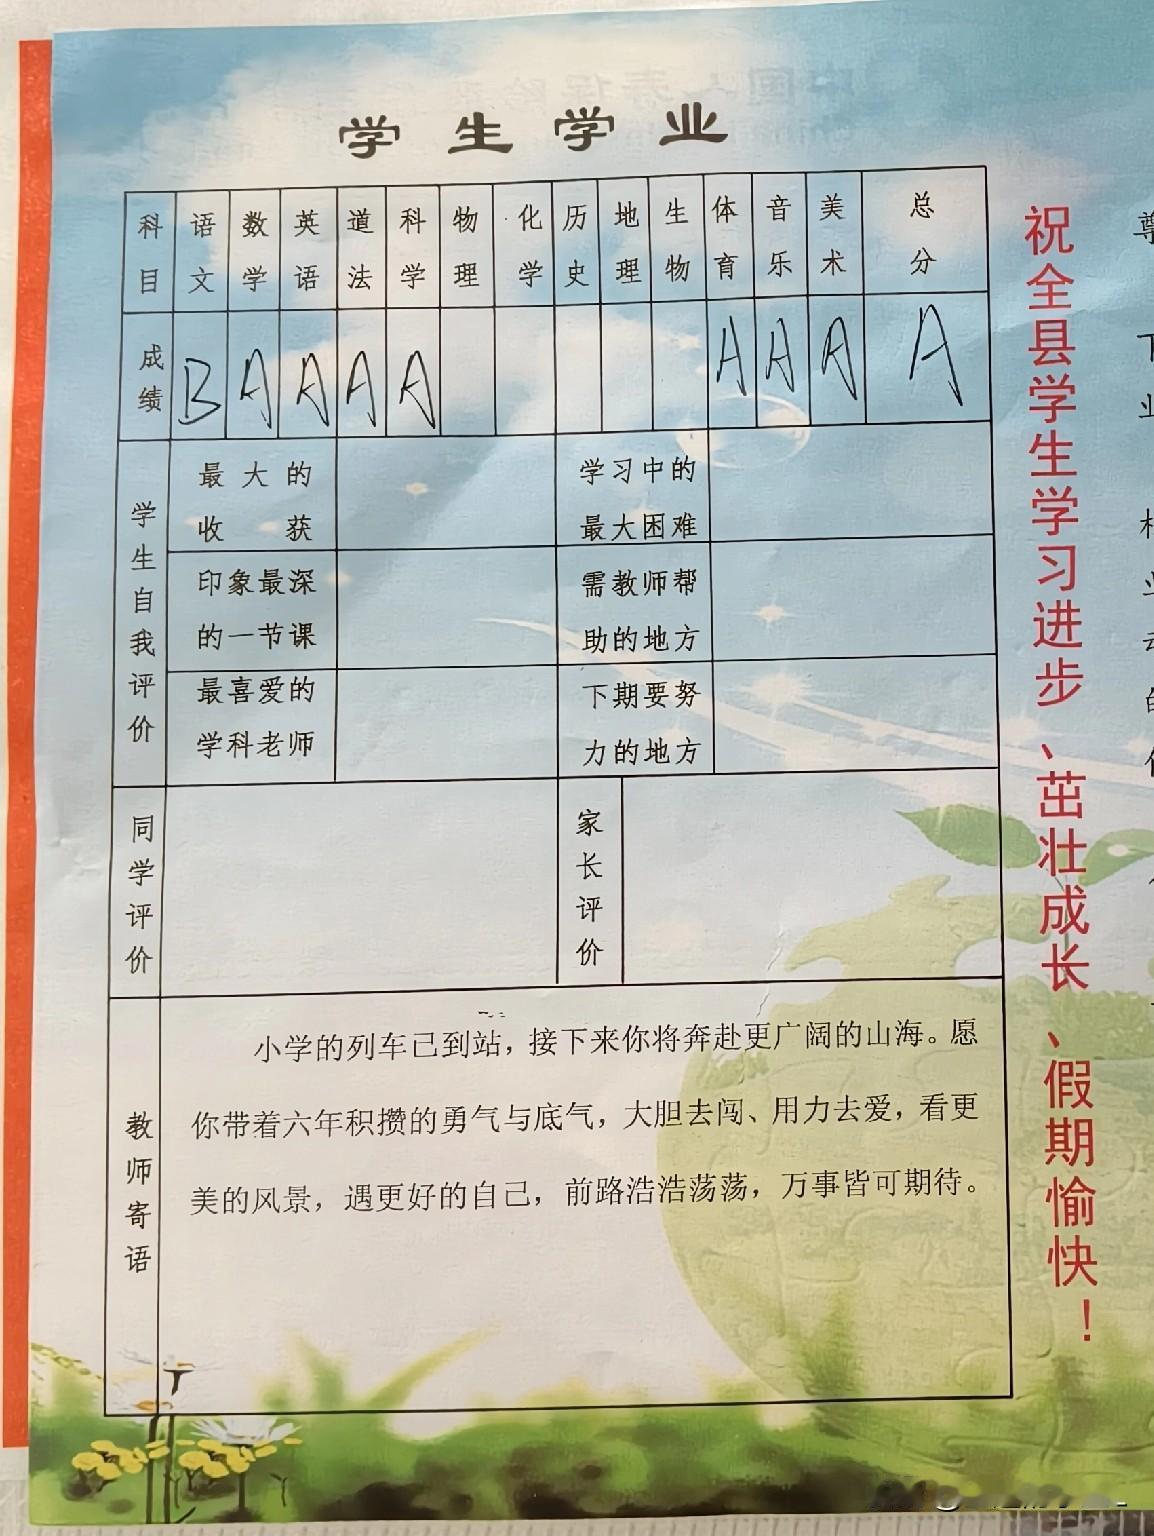 学生学业
科目 语文 数学 英语 道法 科学 物理 化学 历史 地理 生物 体育 音乐 美术 总分
成绩 B A A A A A A A A
学生自我评价
最大的收获
学习中的最大困难
印象最深的一节课
需教师帮助的地方
最喜爱的学科老师
下期要努力的地方
同学评价
家长评价
教师寄语
小学的列车已到站，接下来你将奔赴更广阔的山海。愿
你带着六年积攒的勇气与底气，大胆去闯、用力去爱，看更
美的风景，遇更好的自己，前路浩浩荡荡，万事皆可期待。
祝全县学生学习进步、茁壮成长、假期愉快！